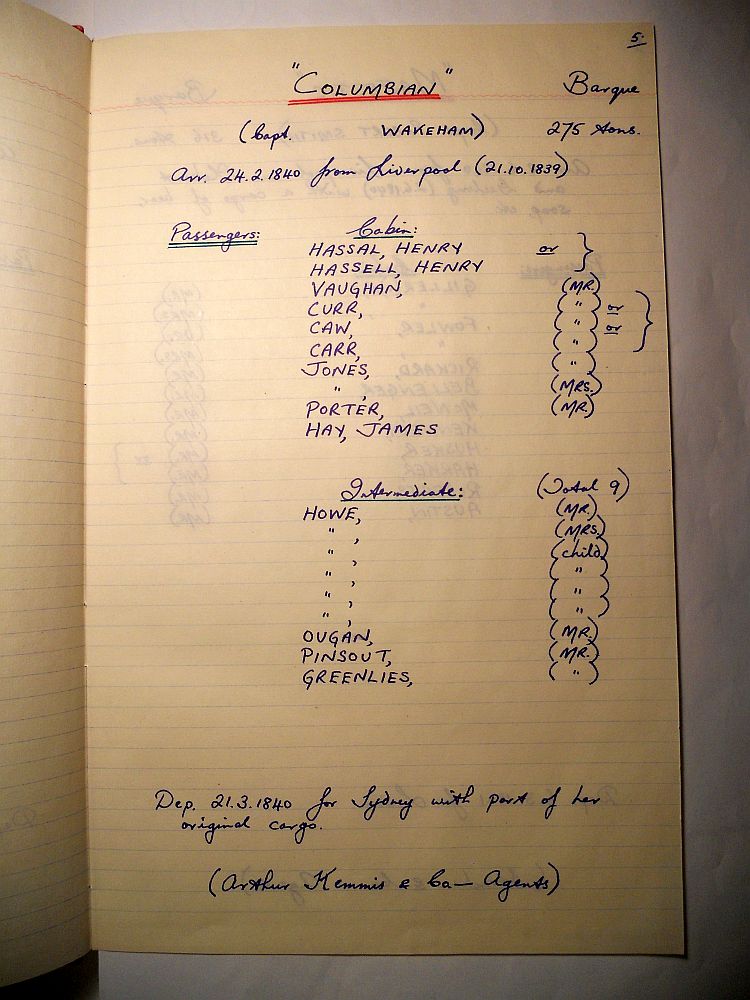 5.
"COLUMBIAN" Barque
(Capt. WAKEHAM) 275 tons.
Arr. 24.2.1840 from Liverpool (21.10.1839)
Passengers: Cabin:
HASSAL, HENRY or
HASSELL, HENRY
VAUGHAN, (MR.)
CURR, ( " )
CAW, ( " ) or
CARR, ( " ) or
JONES, ( " )
" , (MRS.)
PORTER, (MR.)
HAY, JAMES
Intermediate: (Total 9)
HOWE, (MR.)
" , (MRS.)
" , (child)
" , ( " )
" , ( " )
" , ( " )
OUGAN, (MR.)
PINSOUT, (MR.)
GREENLIES, ( " )
Dep. 21.3.1840 for Sydney with part of her
original cargo.
(Arthur Kemmis & Co— Agents)